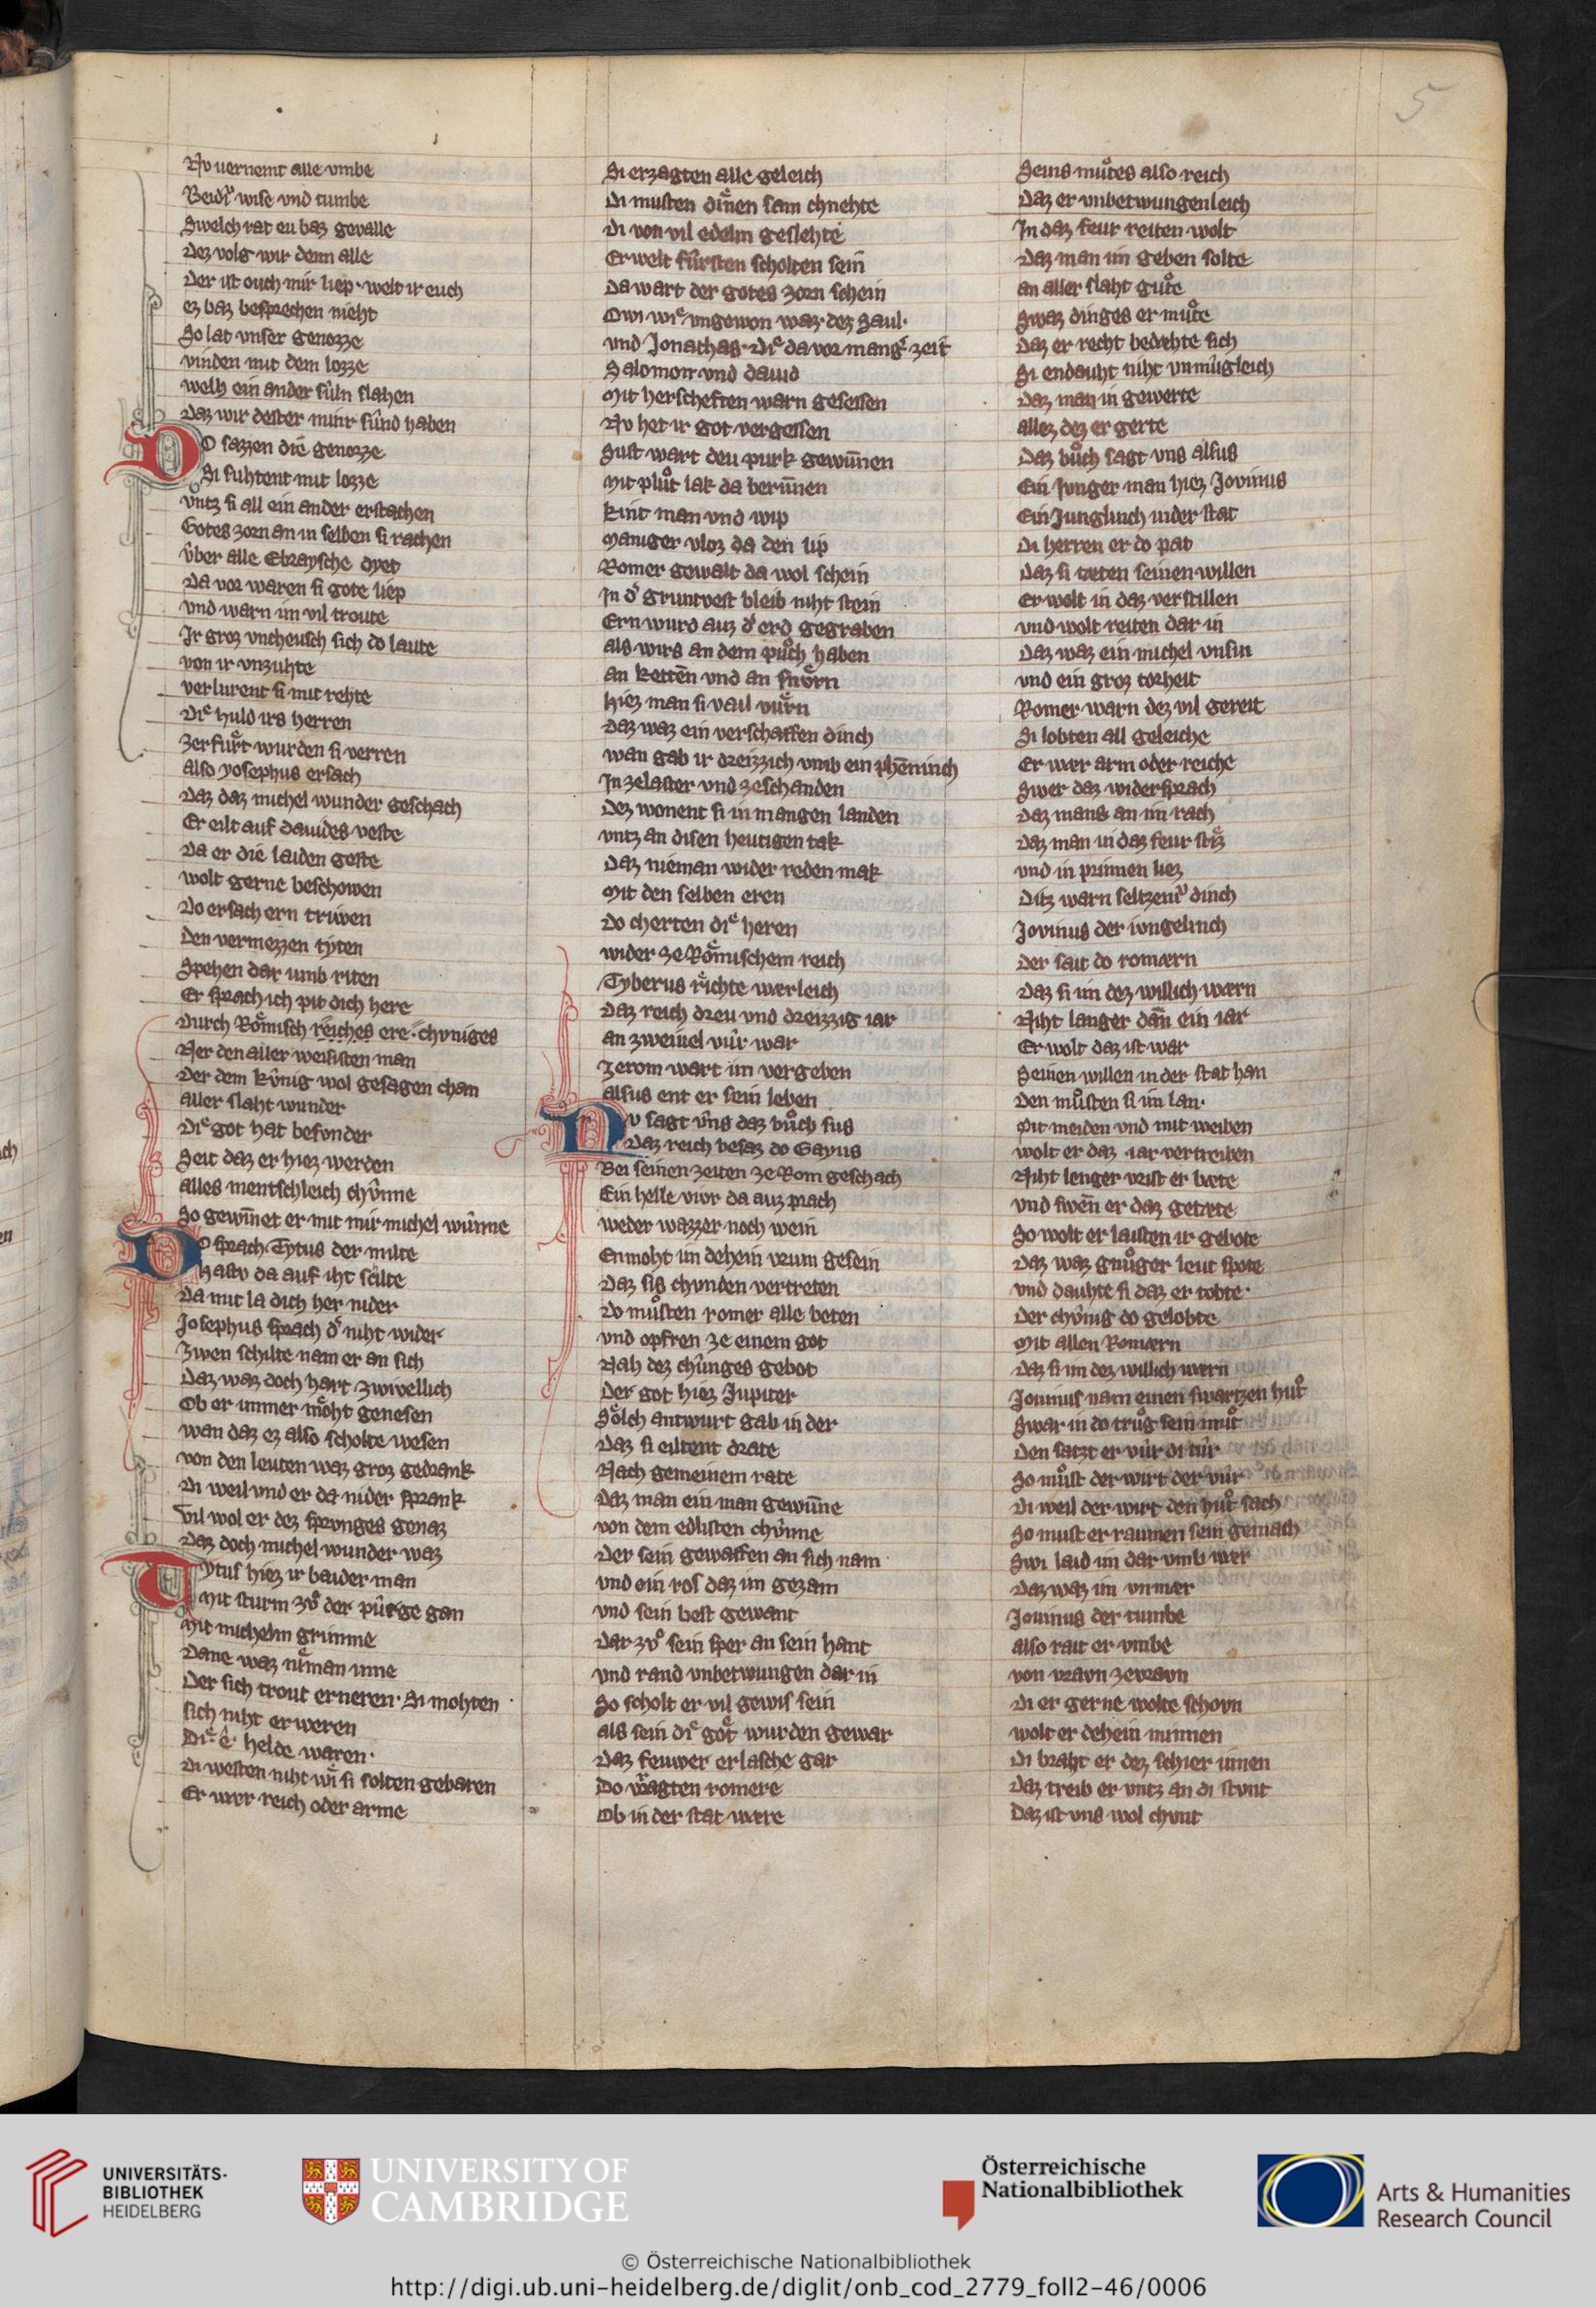 5
Nv uernemt alle vmbe
Beidͥ wise vnd tumbe
Swelch rat eu baz gevalle
Dez volg wir denn alle
Der ist ouch mir liep · welt ir euch
ez baz besprechen nieht
So lat vnser genozze
vinden mit dem lozze
welh ein ander süln slahen
Daz wir dester minr sünd haben
Do sazzen die genozze
Si suhtent mit lozze
vntz si all ein ander erstachen
Gotes zorn an in selben si rachen
über alle Ebraysche dyet
Da vor waren si gote liep
vnd warn im vil troute
Ir groz vncheusch sich do laute
von ir vnzuhte
verlurent si mit rehte
Die huld irs herren
zerfuͤrt wurden si verren
Also yosephus ersach
Daz daz michel wunder geschach
Er eilt auf dauides veste
Da er die laiden geste
wolt gerne beschowen
Do ersach ern triwen
Den vermezzen tyten
Spehen dar umb riten
Er sprach ich pit dich here
Durch Römisch reiches ere · chuniges
Ner den aller weisisten man
Der dem künig wol gesagen chan
aller slaht wunder
Die got hat besunder
Seit daz er hiez werden
alles mentschleich chünne
So gewinnet er mit mir michel wünne
Do sprach Tytus der milte
Hastv da auf iht schilte
Da mit la dich her nider
Josephus sprach dͦ niht wider
Zwen schilte nam er an sich
Daz waz doch hart zwivellich
Ob er immer möht genesen
wan daz ez also scholte wesen
von den leuten waz groz gedrank
Di weil vnd er da nider sprank
Vil wol er dez sprunges genaz
Daz doch michel wunder waz
Tytus hiez ir baider man
Mit sturm zvͦ der pürge gan
Mit michelm grimme
Dane waz nieman inne
Der sich trout erneren · Si mohten
sich niht erweren
Die ê helde waren ·
Di westen niht wi si solten gebaren
Er wer reich oder arme
Si erzagten alle geleich
Di musten dinen sam chnehte
Di von vil edelm geslehte
Er welt fürsten scholten sein
Da wart der gotes zorn schein
Owi wie vngewon waz dez Saul ·
vnd Jonathas · Die da vor mange zeit
Salomon vnd dauid
Mit herscheften warn gesessen
Nv het ir got vergessen
Sust wart deu purk gewunnen
Mit pluͦt lak da berunnen
kint man vnd wip
Maniger vloz da den lip
Romer gewalt da wol schein
In dͥ gruntvest bleib niht stein
Ern wurd auz dͥ erd gegraben
als wirs an dem puͦch haben
an ketten vnd an snürn
Hiez man si vail vuͤrn
Daz waz ein verschaffen dinch
wan gab ir dreizzich vmb ein phenninch
In ze laster vnd ze schanden
Dez wonent si in mangen landen
vntz an disen heutigen tak
Daz nieman wider reden mak
Mit den selben eren
Do cherten die heren
wider ze Römischem reich
Tyberus richte werleich
Daz reich dreu vnd dreizzig iar
an zweiuel vür war
ze rom wart im vergeben
alsus ent er sein leben
Nv sagt vns daz buͦch sus
Daz reich besaz do Gayus
Bei seinen zeiten ze Rom geschach
Ein helle viwr da auz prach
weder wazzer noch wein
Enmoht im dehein vrum gesein
Daz sis chunden vertreten
Do muͦsten romer alle beten
vnd opfren ze einem got
Nah dez chünges gebot
Der got hiez Jupiter
Sölch antwurt gab in der
Daz si eiltent drate
Nach gemeinem rate
Daz man ein man gewunne
von dem edlisten chünne
Der sein gewaffen an sich nam
vnd ein ros daz im gezam
vnd sein best gewant
Dar zvͦ sein sper an sein hant
vnd rand vnbetwungen dar in
So scholt er vil gewis sein
als sein die göt wurden gewar
Daz feuwer erlasche gar
Do vragten romere
Ob in der stat were
Seins muͦtes also reich
Daz er vnbetwungenleich
In daz feur reiten wolt
Daz man im geben solte
an aller slaht guͦte
Swaz dinges er muͦte
Daz er recht bedæhte sich
Si endauht niht vnmügleich
Daz man in gewerte
allez dez er gerte
Daz buͦch sagt vns alsus
Ein Junger man hiez Jovinus
Ein Junglinch in der stat
Di herren er do pat
Daz si tæten seinen willen
Er wolt in daz verstillen
vnd wolt reiten dar in
Daz waz ein michel vnsin
vnd ein groz torheit
Romer warn dez vil gereit
Si lobten all geleiche
Er wer arm oder reiche
Swer daz widersprach
Daz mans an im rach
Daz man in daz feur stiz
vnd in prinnen liez
Ditz warn seltzenͥ dinch
Jovinus der iungelinch
Der sait do romærn
Daz si im dez willich wærn
Niht langer dann ein iar
Er wolt daz ist war
Seinen willen in der stat han
Den muͦsten si im lan ·
Mit meiden vnd mit weiben
wolt er daz iar vertreiben
Niht lenger vrist er bæte
vnd swenn er daz getæte
So wolt er laisten ir gebote
Daz waz gnuͦger leut spote
vnd dauhte si daz er tobte ·
Der chünig do gelobte
Mit allen Romærn
Daz si im dez willich wern
Jouinus nam einen swartzen huͦt
Swar in do truͦg sein muͦt
Den satzt er vür di tür
So muͦst der wirt der vür
Di weil der wirt den huͦt sach
So must er raumen sein gemach
Swi laid im dar vmb wer
Daz waz im vnmær
Jouinus der tumbe
also rait er vmbe
von vravn ze vravn
Di er gerne wolte schovn
wolt er dehein minnen
Di braht er dez schier innen
Daz treib er vntz an di stunt
Daz ist vns wol chunt
UNIVERSITÄTS-
BIBLIOTHEK
HEIDELBERG
UNIVERSITY OF
CAMBRIDGE
Österreichische
Nationalbibliothek
Arts & Humanities
Research Council
© Österreichische Nationalbibliothek
http://digi.ub.uni-heidelberg.de/diglit/onb_cod_2779_foll2-46/0006